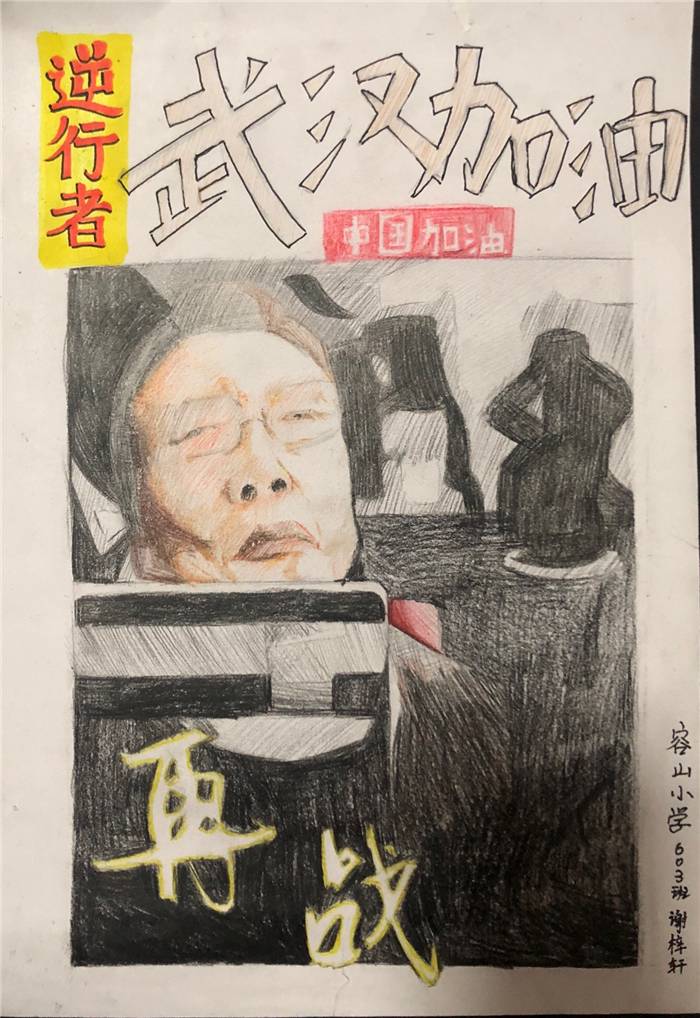 逆行者
武汉加油
中国加油
再战
容山小学603班谢梓轩